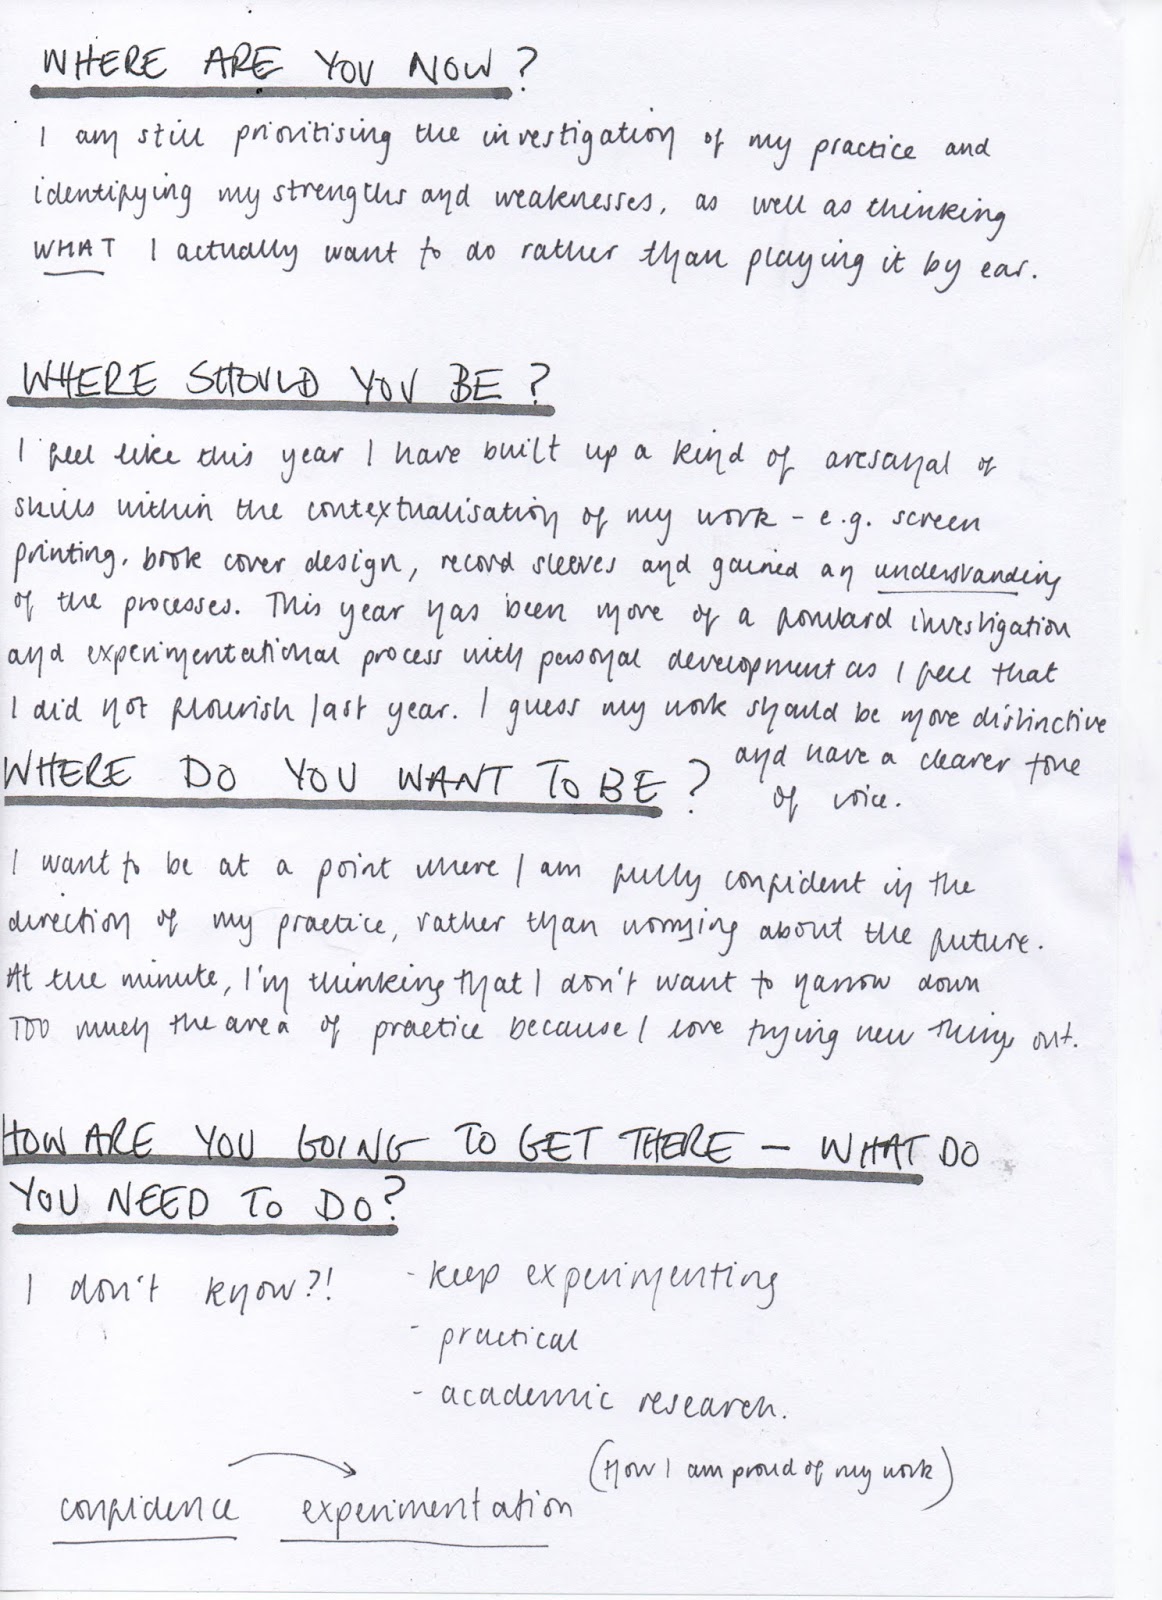 WHERE ARE YOU NOW?
I am still prioritising the investigation of my practice and
identifying my strengths and weaknesses, as well as thinking
WHAT I actually want to do rather than playing it by ear.
WHERE SHOULD YOU BE?
I feel like this year I have built up a kind of aresanal of
skills within the contextualisation of my work - e.g. screen
printing, book cover design, record sleeves and gained an understanding
of the processes. This year has been more of a forward investigation
and experimentational process with personal development as I feel that
I did not flourish last year. I guess my work should be more distinctive
and have a clearer tone
of voice.
WHERE DO YOU WANT TO BE?
I want to be at a point where I am fully confident in the
direction of my practice, rather than worrying about the future.
At the minute, I'm thinking that I don't want to narrow down
TOO much the area of practice because I love trying new things out.
HOW ARE YOU GOING TO GET THERE - WHAT DO
YOU NEED TO DO?
I don't know?!
- keep experimenting
- practical
- academic research.
(How I am proud of my work)
confidence experimentation